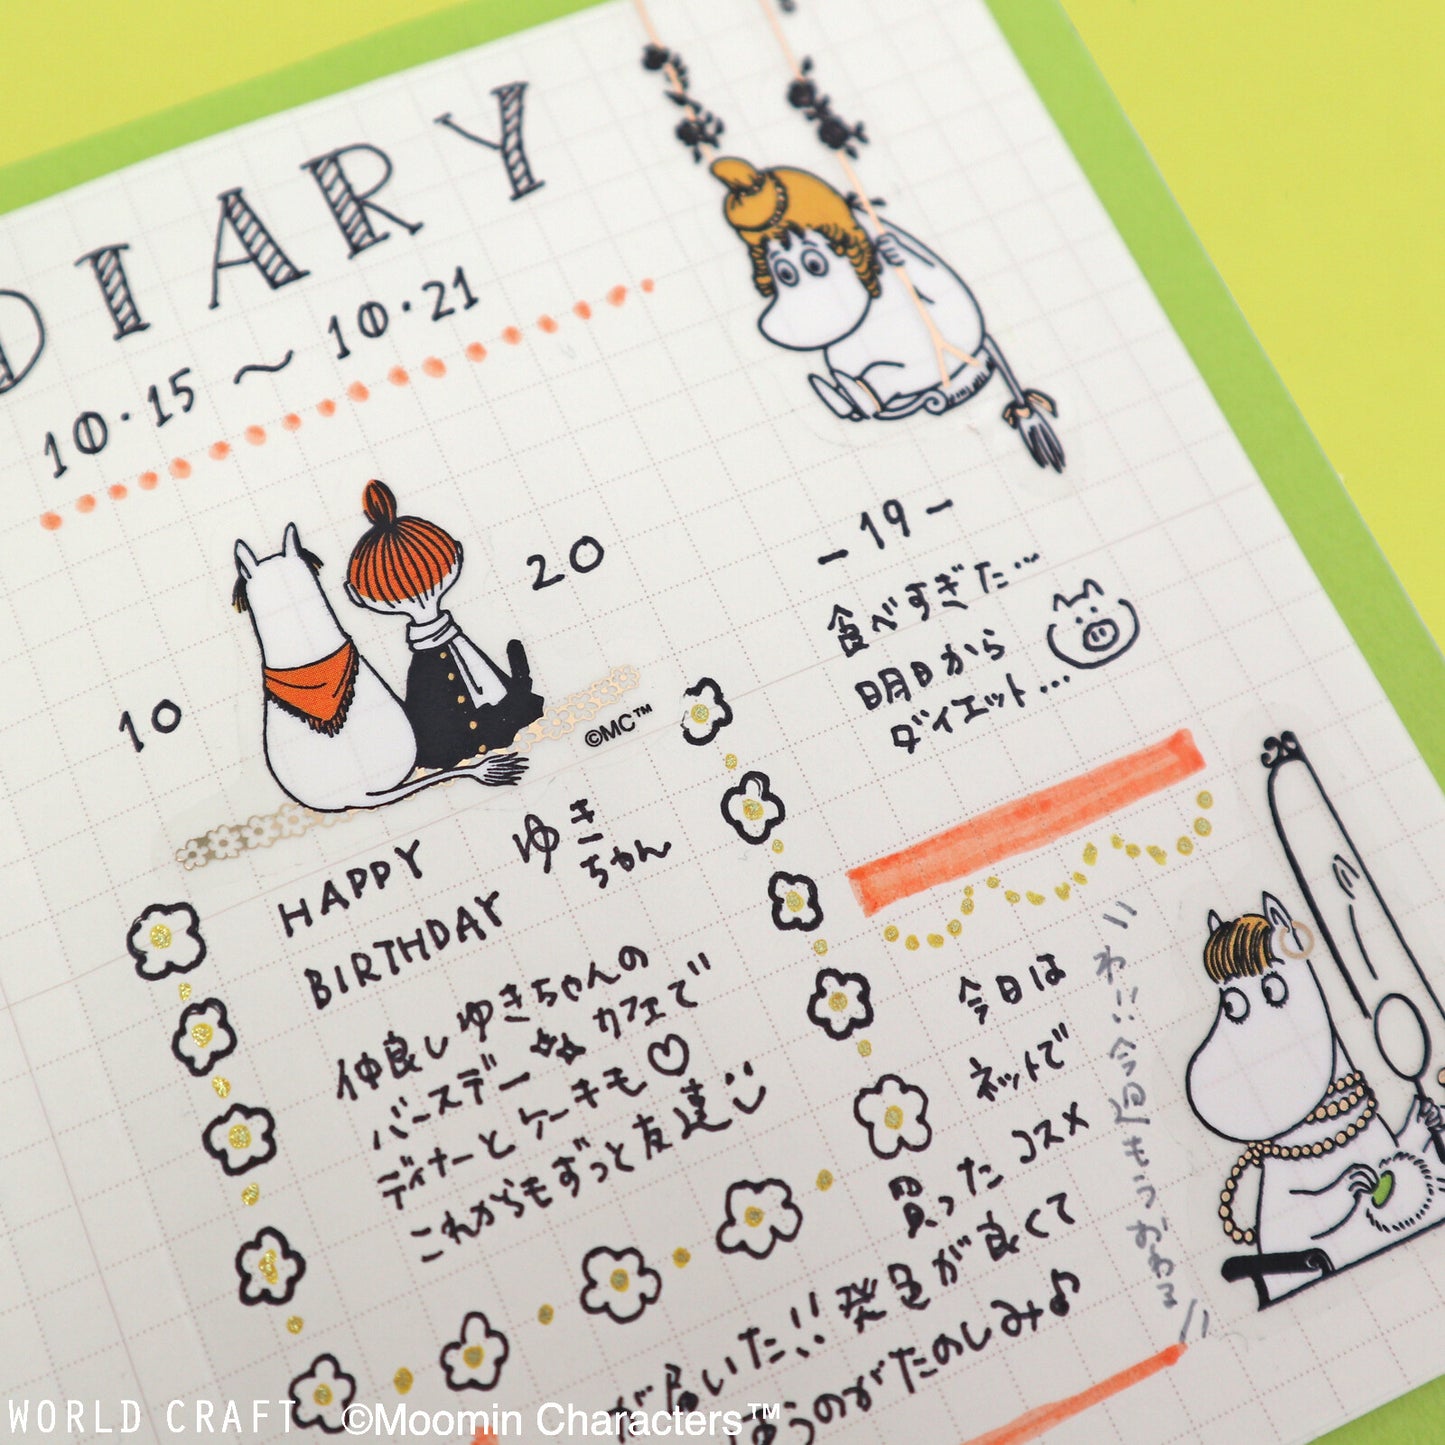 DIARY
10・15 〜 10・21
10
20
©MC™
HAPPY
BIRTHDAY
ゆき
ちゃん
仲良しゆきちゃんの
バースデー カフェで
ディナーとケーキも♡
これからもずっと友達
-19-
食べすぎた…
明日から
ダイエット…
今日は
ネットで
買ったコスメ
が届いた!! 発色が良くて
使うのがたのしみ♪
わ!!今週もうおわる
WORLD CRAFT ©Moomin Characters™